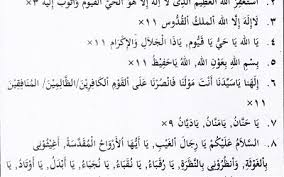 ٢. اَسْتَغْفِرُ اللهَ الْعَظِيْمَ الَّذِيْ لَا إِلٰهَ إِلَّا هُوَ الْحَيُّ الْقَيُّوْمُ وَأَتُوْبُ إِلَيْهِ ×٣
٣. لَاإِلٰهَ إِلَّا اللهُ الْمَلِكُ الْقُدُّوْسُ ×١١
٤. يَا اللهُ يَا حَيُّ يَا قَيُّوْمُ, يَاذَا الْجَلَالِ وَالْإِكْرَامِ ×١١
٥. بِسْمِ اللهِ بِعَوْنِ اللهِ, يَاحَفِيْظُ ×١١
٦. إِلٰهَنَا يَاسَيِّدَنَا أَنْتَ مَوْلٰنَا فَانْصُرْنَا عَلَى الْقَوْمِ الْكَافِرِيْنَ/الظَّالِمِيْنَ/ الْمُنَافِقِيْنَ
×١١
٧. يَا حَنَّانُ, يَامَنَّانُ, يَادَيَّانُ ×٩
٨. السَّلَامُ عَلَيْكُمْ يَا رِجَالَ الْغَيْبِ, يَا أَيُّهَا الْأَرْوَاحُ الْمُقَدَّسَةُ, أَغِيْثُوْنِيْ
بِالْغَوْثَةِ, وَانْظُرُوْنِيْ بِالنَّظْرَةِ, يَا رُقَبَاءُ, يَا نُقَبَاءُ, يَا نُجَبَاءُ, يَا أَبْدَلُ, يَا أَوْتَادُ, يَا